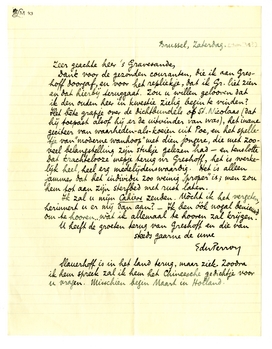 Brussel, Zaterdag.
Zeer geachte heer 's Gravesande,
Dank voor de gezonden couranten, die ik aan Gres-
hoff doorgaf, en voor het replikje, dat ik Gr. liet zien
en dat hierbij teruggaat. Zou u willen gelooven dat
ik den ouden heer in kwestie zielig begin te vinden?
Het bête grapje over de dichtbundels op St. Nicolaas (dat
hij toepast alsof hij er de uitvinder van was), het
van waarheden-als-koeien uit Poe, en het spelle-
tje van "moderne wanhoop" met den jongere, die met zoo-
veel belangstelling zijn stukje gelezen had — en tenslotte
dat krachtelooze wipje terug n/ Greshoff, het is werke-
lijk heel, heel erg medelijdenswaardig. Het is alleen
jammer dat het individu zoo weinig is; men zou
hem tot aan zijn sterfbed met rust laten.
Ik zal u mijn Cahiers zenden. Mocht ik het vergeten,
herinnert u er mij dan aan? — Ik ben ook nogal benieuwd
om te hooren, wat ik allemaal te hooren zal krijgen.
U heeft de groeten terug van Greshoff en die van
steeds gaarne de uwe
EduPerron
Slauerhoff is in het land terug, maar ziek. Zoodra
ik hem spreek zal ik hem het Chineesche gedichtje voor
u vragen. Misschien begin Maart in Holland.